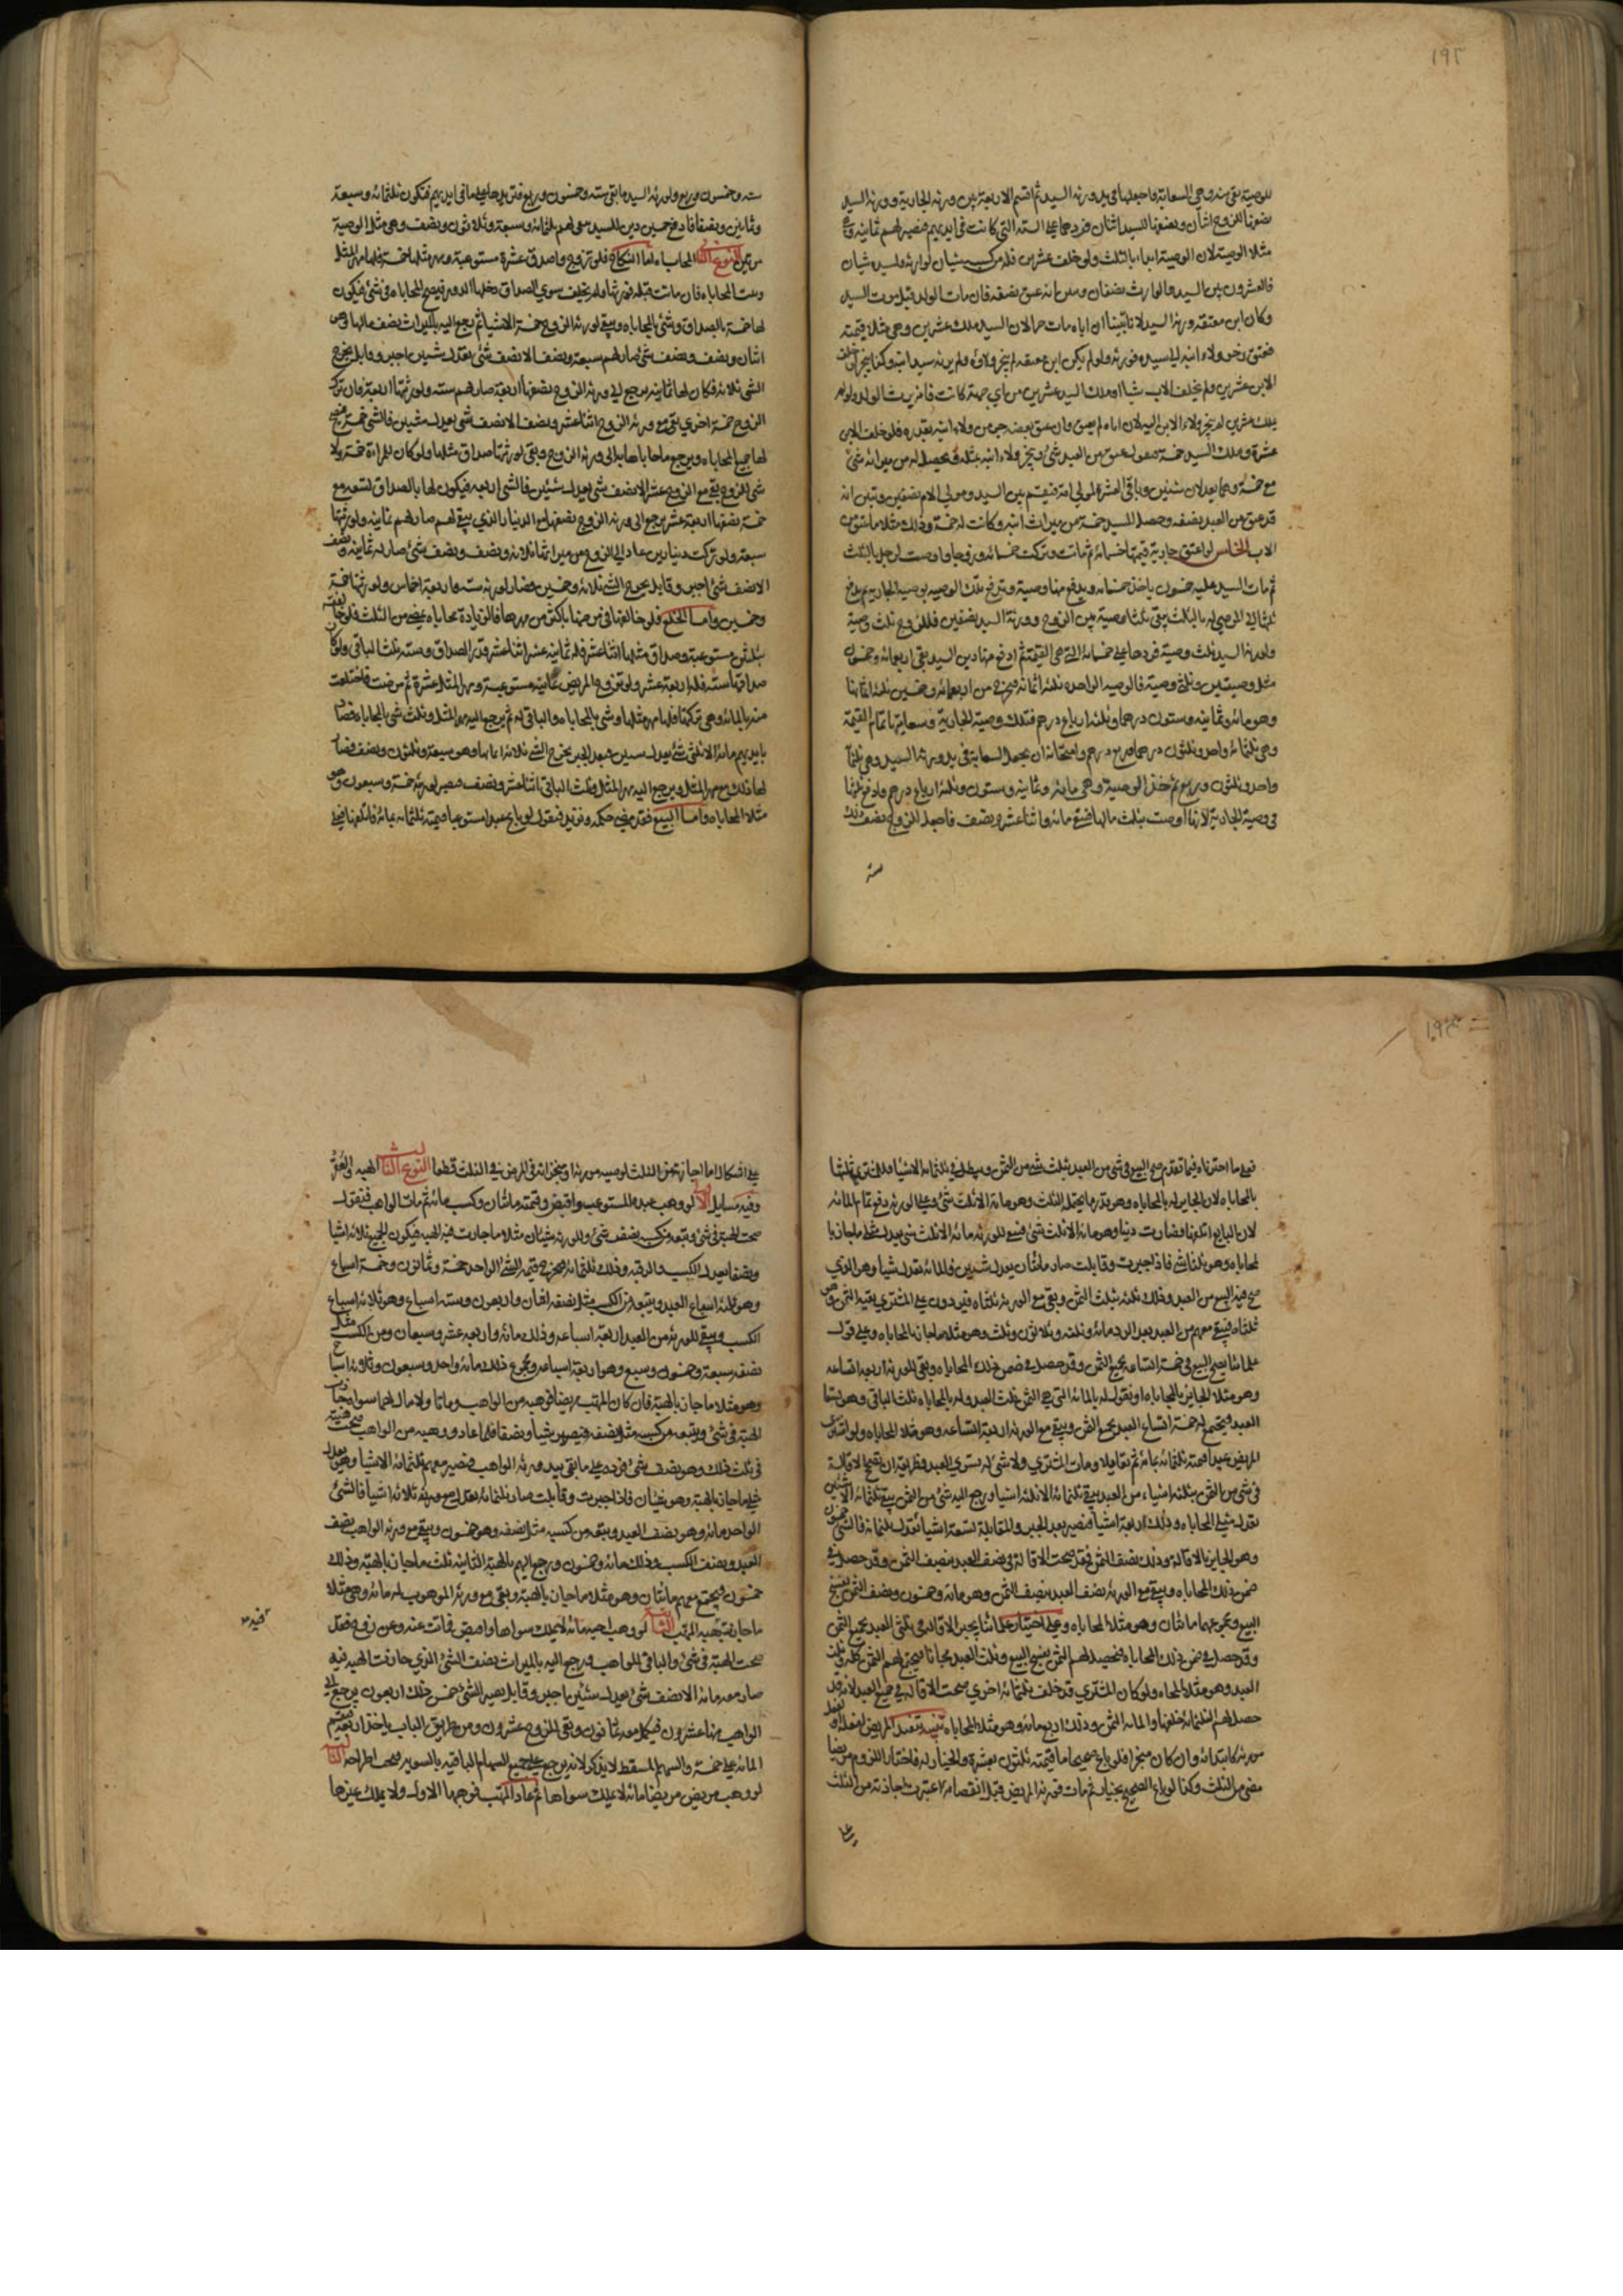 ١٩٢
للوصية بقي منه وهي السعاية فاجعلها في يد ورثة السيد ثم اقسم الاربعة بين ورثة الجارية وورثة السيد
نصفها للزوج اثنان ونصفها للسيد اثنان فزدهما على الستة التي كانت في ايديهم فيصير لهم ثمانية وهي
مثلا الوصية لان الوصية اربعة بالثلث ولو خلف عشرين فله من كسبه شيئان لوارثه ولسيده شيئان
فالعشرون بين السيد والوارث نصفان وتبين انه عتق نصفه فان مات الولد قبل موت السيد
وكان ابن معتقه ورثه السيد لانا تبينا ان اباه مات حرا لان السيد ملك عشرين وهي مثلا قيمته
فعتق وجر ولاء ابنه الى سيده فورثه ولو لم يكن ابن معتقه لم ينجر ولاؤه ولم يرثه سيد ابيه وكذا لو خلف
الابن عشرين ولم يخلف الاب شيئا او ملك السيد عشرين من اي جهة كانت فان يرث الولد ولو لم
يملك عشرين لم ينجر ولاء الابن اليه لان اباه لم يعتق وان عتق بعضه جر من ولاء ابنه بقدره فلو خلف الابن
عشرة وملك السيد خمسة فتقول عتق من العبد شئ وينجر ولاء ابنه مثله ويحصل له من ميراثه شئ
مع خمسة وهما يعدلان شيئين وباقي العشرة لمولى امه فتقسم بين السيد ومولى الام نصفين وتبين انه
قد عتق من العبد نصفه وحصل للسيد خمسة من ميراث ابنه وكانت له خمسة وذلك مثلا ما عتق من
الاب الخامس لو اعتق جارية قيمتها خمسمائة ثم ماتت وتركت خمسمائة وزوجا واوصت لرجل بالثلث
ثم مات السيد عليه خمسون ياخذ خمسمائة ويدفع منها وصية
ولورثة السيد ثلث وصية فزدهما على خمسمائة التي هي القيمة ثم ادفع منها دين السيد بقي اربعمائة وخمسون
مثل وصيتين وثلثي وصية فالوصية الواحدة ثلثة اثمانه فتخرج من اربعمائة وخمسين ثلثة اثمانها
وهو مائة وثمانية وستون درهما وثلثة ارباع درهم فتلك وصية الجارية وسعايتها تمام القيمة
وهي ثلثمائة واحد وثلثون درهما وربع درهم وامتحانه ان يجعل السعاية في يد ورثة السيد وهي ثلثمائة
واحد وثلثون وربع ثم خذ الوصية وهي مائة وثمانية وستون وثلثة ارباع درهم وادفع ثلثها
في وصية الجارية لانها اوصت بثلث مالها فتبقى مائة واثنا عشر ونصف فاجعل للزوج نصف ذلك
ستة
ستة وخمسون وربع ولورثة السيد ما بقي ستة وخمسون وربع فتزيدها على ما في ايديهم فتكون ثلثمائة وسبعة
وثمانين ونصفا فادفع خمسين دين السيد بقي لهم ثلثمائة وسبعة وثلاثون ونصف وهي مثلا الوصية
مرتين النوع الثاني المحاباه اما النكاح فلو تزوج واصدق عشرة مستوعبة ومهر مثلها خمسة فلها مهر المثل
وثلث المحاباه فان ماتت قبله فورثها ولم يخلف سوى الصداق دخلها الدور فيصح المحاباه في شئ فيكون
لها خمسة بالصداق وشئ بالمحاباه ويبقى لورثة الزوج خمسة الا شيئا ثم يرجع اليه بالميراث نصف مالها وهو
اثنان ونصف ونصف شئ صار لهم سبعة ونصف الا نصف شئ يعدل شيئين اجبر وقابل يخرج
الشئ ثلاثة فكان لها ثمانية يرجع الى ورثة الزوج نصفها اربعة صار لهم ستة ولورثتها اربعة فان ترك
الزوج خمسة اخرى بقي مع ورثة الزوج اثنا عشر ونصف الا نصف شئ يعدل شيئين فالشئ خمسة فيصح
لها جميع المحاباه ويرجع ما حاباها به الى ورثة الزوج وبقي لورثتها صداق مثلها ولو كان للمراة خمسة ولا
شئ للزوج بقي مع الزوج عشرة الا نصف شئ يعدل شيئين فالشئ اربعة فيكون لها بالصداق تسعة مع
خمسة نصفها اربعة عشر يرجع الى ورثة الزوج نصفها مع الدينار الذي بقي لهم صار لهم ثمانية ولورثتها
سبعة ولو تركت دينارين عاد الى الزوج من ميراثها ثلاثة ونصف ونصف شئ صار له ثمانية ونصف
الا نصف شئ اجبر وقابل يخرج الشئ ثلاثة وخمسين فصار لورثته ستة واربعة اخماس ولورثتها خمسة
وخمسين واما الخلع فلو خالعها في مرضها باكثر من مهرها فالزيادة محاباه يعتبر من الثلث فلو خالعته
بثلثين مستوعبة وصداق مثلها اثنا عشر فله ثمانية عشر اثنا عشر قدر الصداق وستة ثلث الباقي ولو كان
صداقها ستة فله اربعة عشر ولو تزوج المريض على مائة مستوعبة ومهر المثل عشرة ثم مرضت فاختلعت
منه بالمائة وهي تركتها فلها مهر مثلها وشئ بالمحاباه والباقي له ثم يرجع اليه مهر المثل وثلث شئ بالمحاباه فصار
بايديهم مائة الا ثلثي شئ يعدل شيئين فبعد الجبر يخرج الشئ ثلاثة اثمانها وهو سبعة وثلثون ونصف فصار
لها ذلك مع مهر المثل ويرجع اليه مهر المثل وثلث الباقي اثنا عشر ونصف فيصير لورثته خمسة وسبعون وهو
مثلا المحاباه واما البيع فقد مضى حكمه ونزيد فنقول لو باع عبدا مستوعبا قيمته ثلثمائة بمائة فاتلفها فعلى
١٩٣
فعلى ما اخترناه فيما تقدم يصح البيع في شئ من العبد بثلث شئ من الثمن ويبطل في ثلثمائة الا شيئا
بالمحاباه لان الجايز له بالمحاباه وهو قدر ما يحتمله الثلث وهو مائة الا ثلث شئ وعلى الورثة دفع تمام المائة
لان البايع اتلفها فصارت دينا وهو مائة الا ثلث شئ فبقي للورثة مائة الا ثلث شئ يعدل مثلي ما جاز با
لمحاباه وهو ثلثا شئ فاذا جبرت وقابلت صار مائتان يعدل شيئين والمائة تعدل شيئا وهو الذي
صح فيه البيع من العبد وذلك ثلثه بثلث الثمن وبقي مع الورثة ثلثاه فيردون على المشتري بقية الثمن وهو
ثلثاه فبقي معهم من العبد بعد الرد مائة وثلثة وثلاثون وثلث وهو مثلا ما جاز بالمحاباه وعلى قول
علمائنا يصح البيع في خمسة اتساعه بجميع الثمن وقد حصل في ضمن ذلك المحاباه وبقي للورثة اربعة اتساعه
وهو مثلا الجايز بالمحاباه او نقول له بالمائة التي هي الثمن ثلث العبد وله بالمحاباه ثلث الباقي وهو تسعا
العبد فيجتمع له خمسة اتساع العبد بجميع الثمن وبقي مع الورثة اربعة اتساعه وهو مثلا المحاباه ولو اشترى
المريض عبدا قيمته ثلثمائة بمائة ثم تقايلا ومات المشتري ولا شئ له سوى العبد فطريقه ان يصح الاقالة
في شئ من الثمن بثلثة اشياء من العبد بقي ثلثمائة الا ثلثة اشيا ورجع اليه شئ من الثمن بقي ثلثمائة الا شيئين
تعدل مثلي المحاباه وذلك اربعة اشيا فيصير بعد الجبر والمقابلة ستة اشيا تعدل ثلثمائة فالشئ خمسون
وهو الجايز بالاقالة وذلك نصف الثمن فقد صحت الاقالة في نصف العبد بنصف الثمن وقد حصل في
ضمن ذلك المحاباه وبقي مع الورثة نصف العبد بنصف الثمن وهو مائة وخمسون ونصف الثمن بفسخ
البيع ومجموعها مائتان وهو مثلا المحاباه وعلى اختيار علمائنا يصح الاقالة في ثلثي العبد بجميع الثمن
وقد حصل في ضمن ذلك المحاباه فيحصل لهم الثمن بفسخ البيع وثلث العبد مجانا فيجتمع لهم الثمن كله وثلث
العبد وهو مثلا المحاباه ولو كان المشتري قد خلف ثلثمائة اخرى صحت الاقالة في جميع العبد لانه قد
حصل لهم الثلثمائة خلفها والمائة الثمن وذلك اربعمائة وهو مثلا المحاباه تنبيه
ولو باع صحيحا ما قيمته ثلثون بعشرة والخيار له فاختار اللزوم مريضا
مضى من الثلث وكذا لو باع الصحيح بخيار ثم مات فورثه المريض قبل انقضائه اعتبرت اجازته من الثلث
على
على اشكال اما اجازته من الثلث لوصية مورثه او منجزاته في المرض ففي الثلث قطعا النوع الثالث الهبه
وفيه مسايل الاولى لو وهب عبده المستوعب واقبض وقيمته مائتان وكسب مائة ثم مات الواهب فنقول
صحت الهبة في شئ وتبعه من كسبه نصف شئ وللورثة شيئان مثلا ما جازت فيه الهبة فيكون الجميع ثلاثة اشيا
ونصفا يعدل الكسب والرقبة وذلك ثلثمائة فيخرج قيمة الشئ الواحد خمسة وثمانون وخمسة اسباع
وهو ثلثة اسباع العبد ويتبعه من الكسب مثل نصفه اثنان واربعون وستة اسباع وهو ثلاثة اسباع
الكسب ويبقى للورثة من العبد اربعة اسباعه وذلك مائة واربعة عشر وسبعان ومن الكسب مثل
نصفه سبعة وخمسون وسبع وهو اربعة اسباعه ومجموع ذلك مائة واحد وسبعون وثلاثة اسباع
وهو مثلا ما جاز بالهبة فان كان المتهب مريضا فوهبه من الواهب وماتا ولا مال لهما سواه
الهبة في شئ ويتبعه من كسبه مثل نصفه فيصير شيئا ونصفا فلما عاد ووهبه من الواهب صحت هبته
في ثلث ذلك وهو نصف شئ فزده على ما بقي بيد ورثة الواهب فيصير معهم ثلثمائة الا شيئا وهو يعدل
مثلي ما جاز بالهبة وهو شيئان فاذا جبرت وقابلت صار ثلثمائة تعدل ثلاثة اشيا فالشئ
الواحد مائة وهو نصف العبد وتبعه من كسبه مثل نصفه وهو خمسون وبقي مع ورثة الواهب نصف
العبد ونصف الكسب وذلك مائة وخمسون ورجع اليهم بالهبة الثانية ثلث ما جاز بالهبة وذلك
خمسون فيجتمع معهم مائتان وهو مثلا ما جاز بالهبة وبقي مع ورثة الموهوب له مائة وهي مثلا
ما جاز فيه هبة المتهب الثانية لو وهب مائة لا يملك سواها واقبض فماتت عنه وعن زوج فقل
صحت الهبة في شئ والباقي للواهب ورجع اليه بالميراث نصف الشئ الذي جازت الهبة فيه
صار معه مائة الا نصف شئ يعدل شيئين اجبر وقابل يصير الشئ خمس ذلك اربعون يرجع الى
الواهب منها عشرون فيكمل معه ثمانون وبقي للزوج عشرون ومن طريق الباب ياخذ اربعة فيقسم
المائة على خمسة والسهم المسقط لا يذكر لانه يرجع على جميع السهام الباقية بالسوية فيجب اطراحه الثالثة
لو وهب مريض مريضا مائة لا يملك سواها ثم عاد المتهب فوهبها الاول ولا يملك غيرها